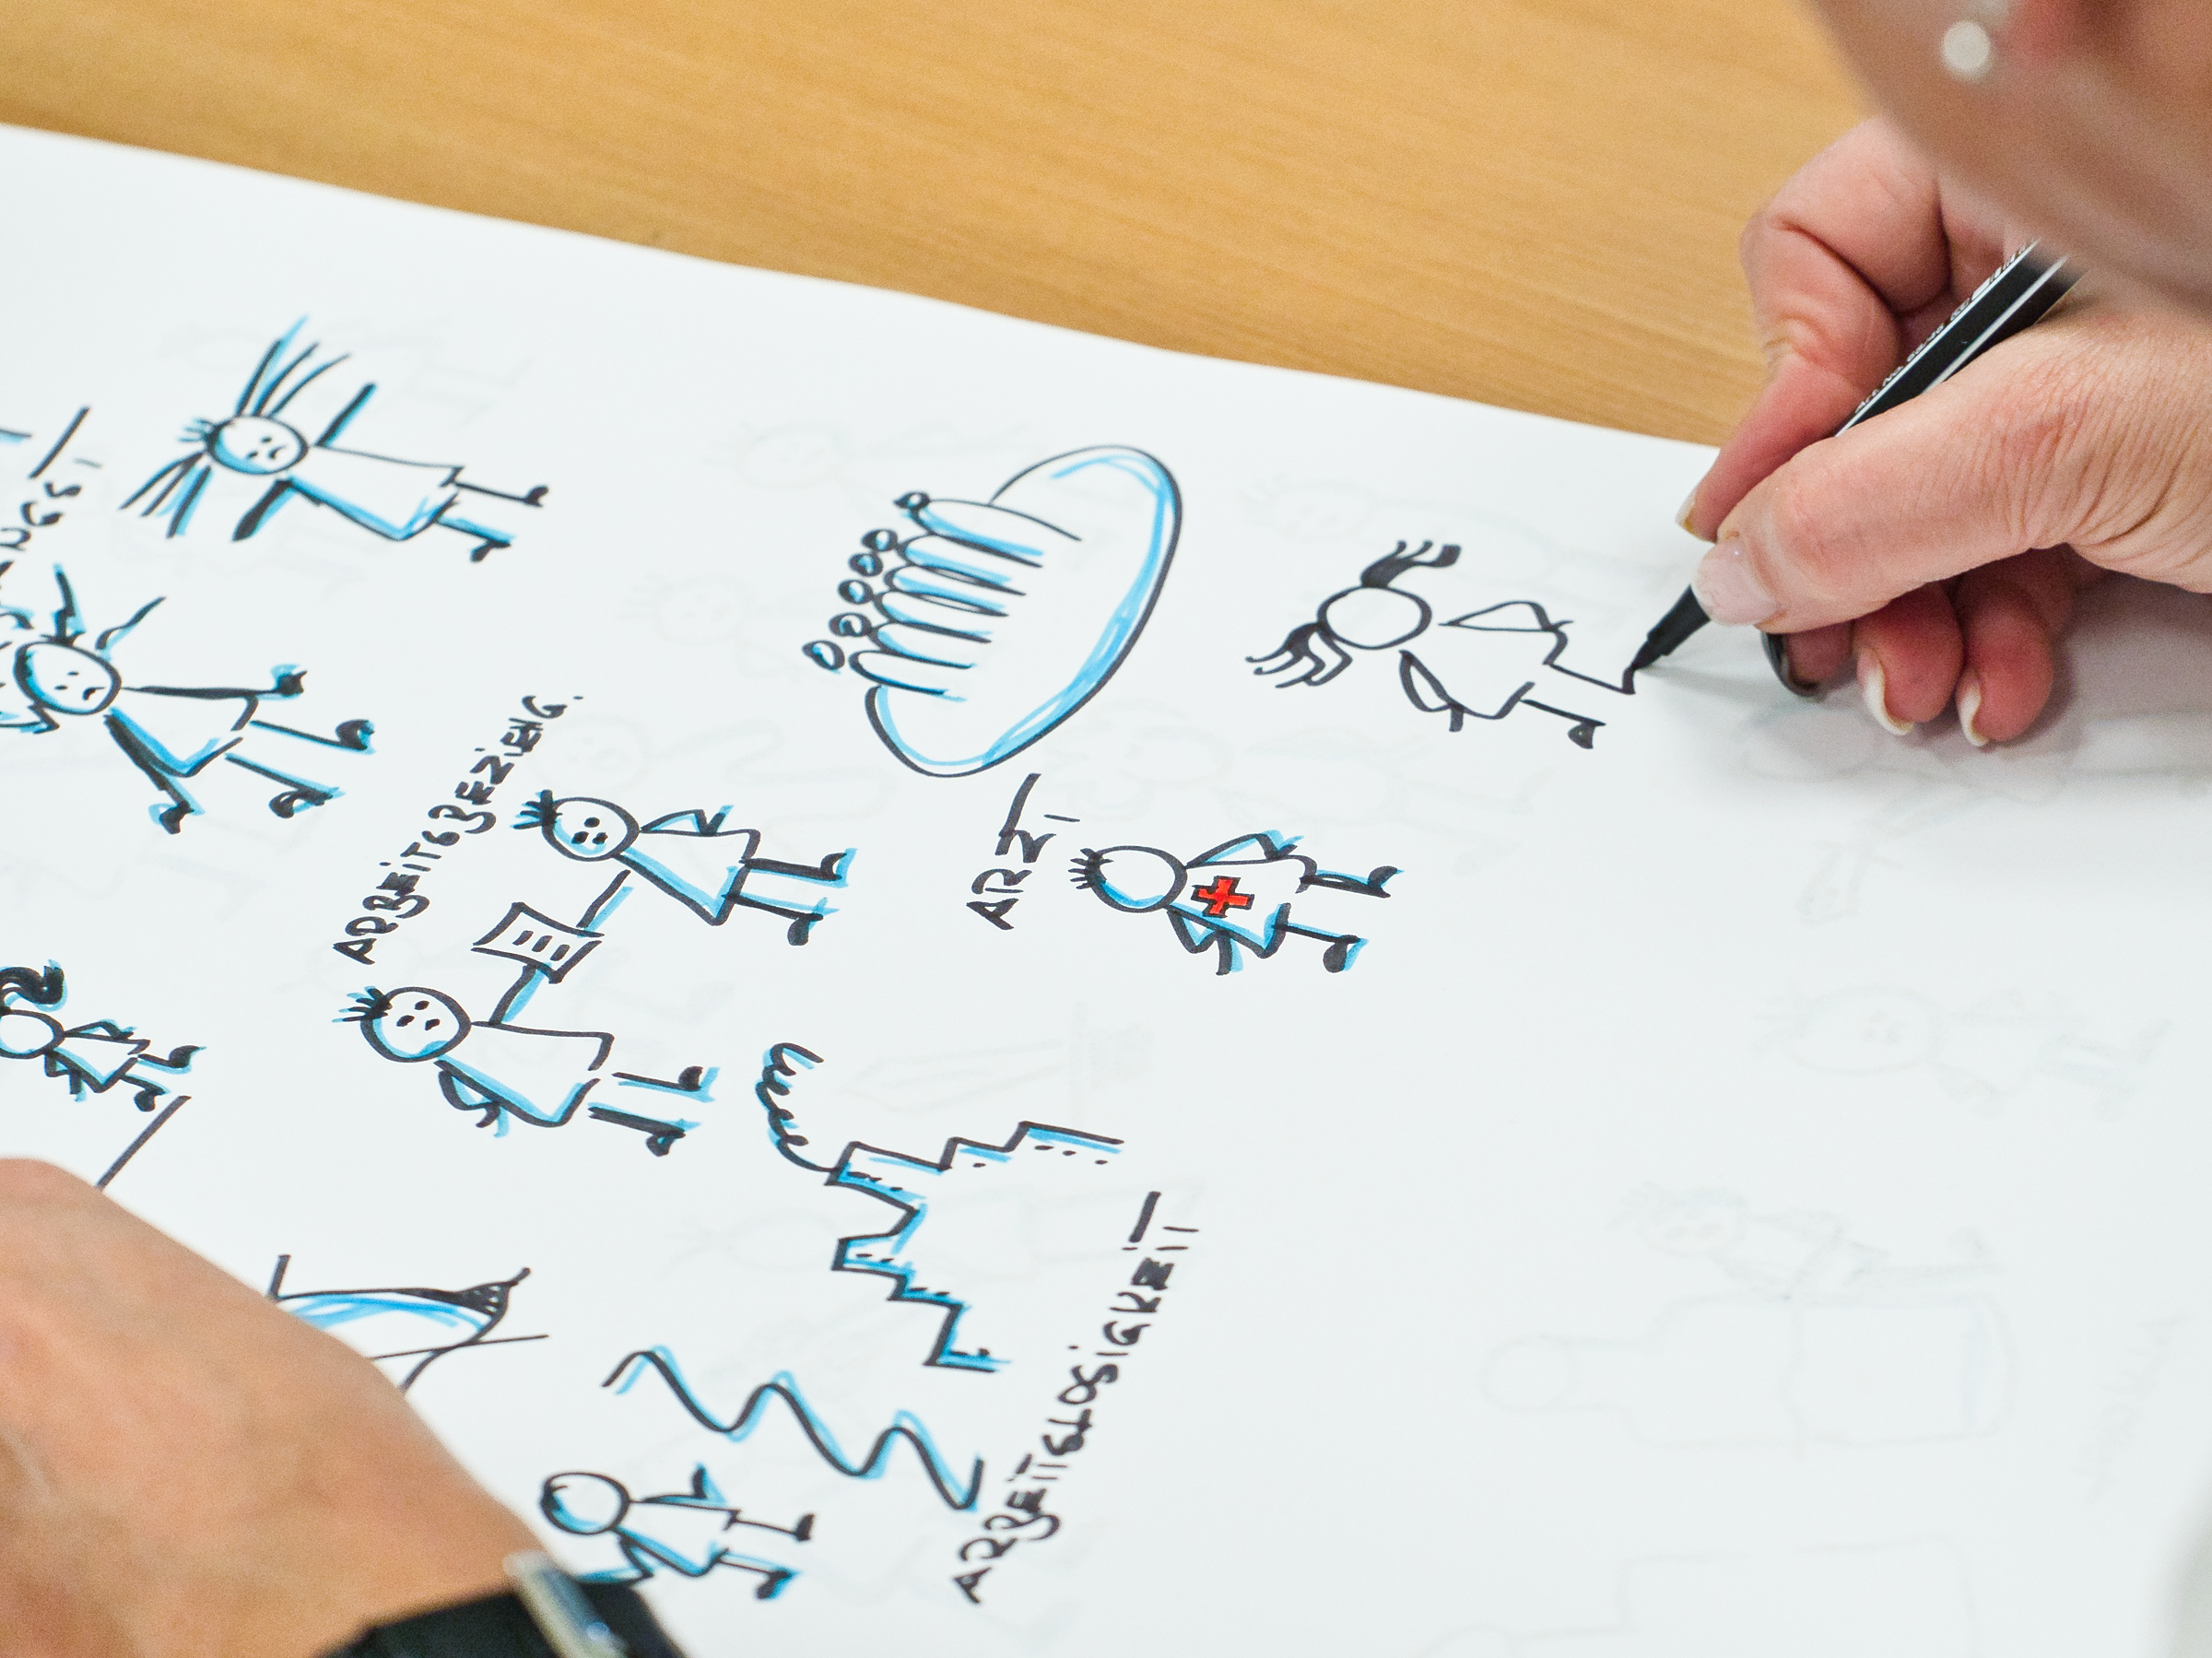 ARBEiTSBEZiEHG.
ARZT
ARBEiTSLOSiGKEiT